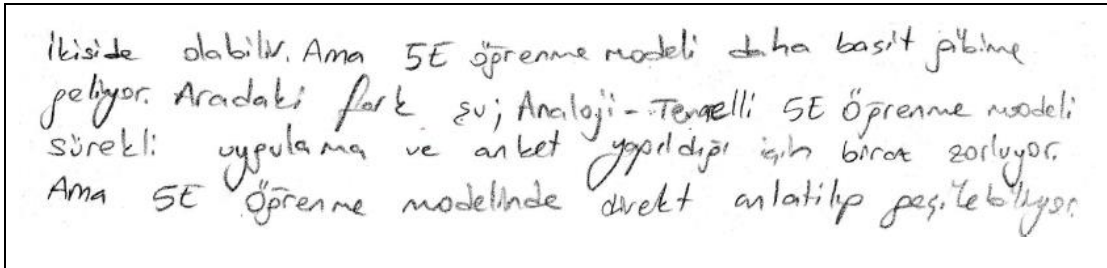 ikiside olabilir. Ama 5E öğrenme modeli daha basit gibime
geliyor. Aradaki fark şu; Analoji-Temelli 5E Öğrenme modeli
sürekli uygulama ve anket yapıldığı için biraz zorluyor.
Ama 5E Öğrenme modelinde direkt anlatılıp geçilebiliyor.